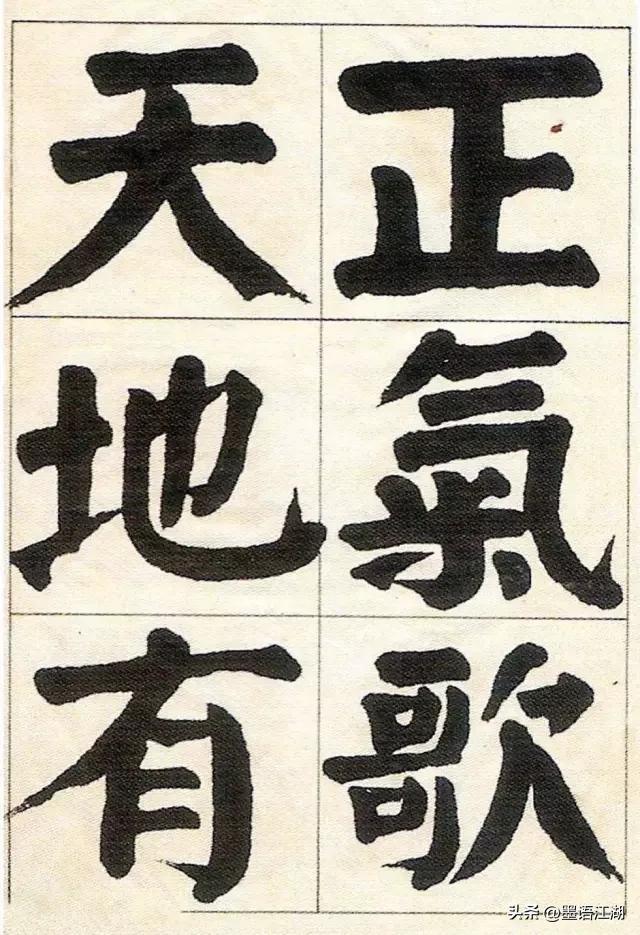 正氣歌
天地有
头条 @墨语江湖